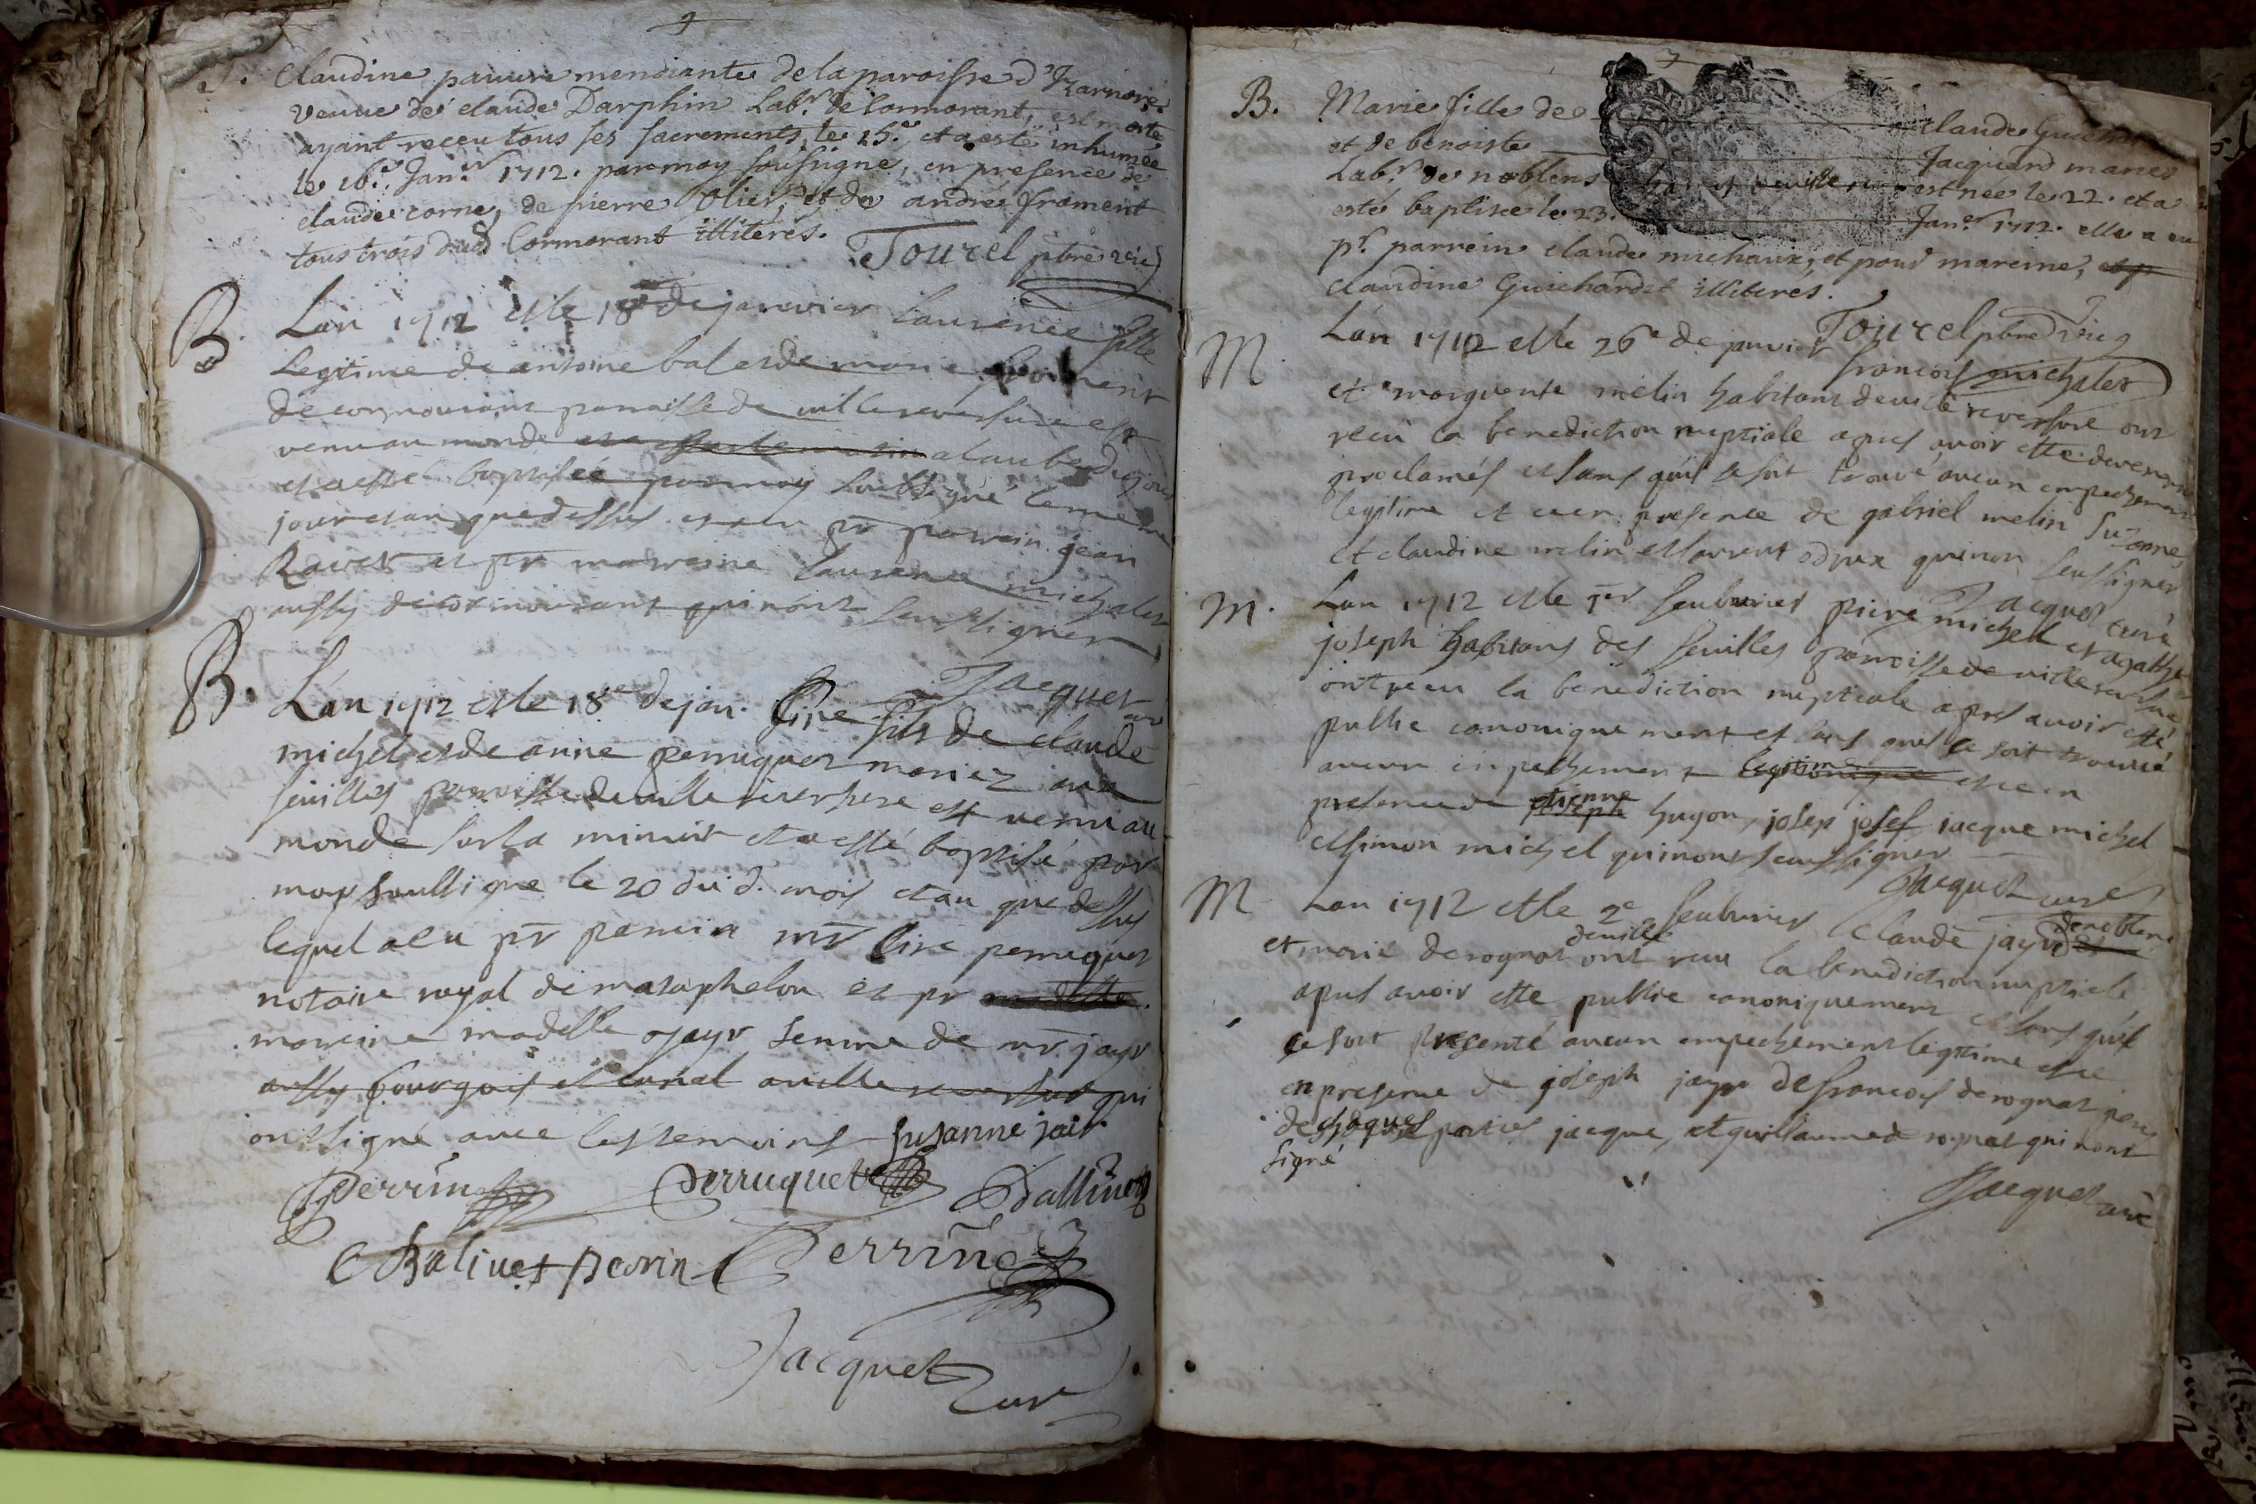 S. Claudine pauvre mendiante de la paroisse d'Izarnore
veuve de claude Darphin Labr. de Cormorant, est morte
ayant receu tous ses sacrements, le 15.e, et a esté inhumée
le 16.e Jan.er 1712. par moy soussigné, en presence de
claude corne, de pierre Olier, et de andré froment
tous trois dud. Cormorant illiterés.
Tourel pbre vic
B. Lan 1712 et le 18 de janvier laurence fille
legitime de antoine bal et de marie froment
de cormourant paroisse de ville reversure est
venu au monde a laube du jour
et a esté baptisée par moy soubsigné le meme
jour et an que dessus et a eu pr parrein jean
Ravet et pr marreine laurence michalet
aussy de cormourant qui nont seu signer
Jacquet curé
B. L'an 1712 et le 18e de jan. fils de claude
michel et de anne perruquet mariez aux
feuilles paroisse de ville reversure est venu au
monde sur la minuit et a esté baptisé par
moy soussigné le 20 du d. mois et an que dessus
lequel a eu pr parrein mr perruquet
notaire royal de mataphelon et pr
marreine madelle jayr femme de mr jayr
aussy bourgois et a ville reversure qui
ont signé avec les temoins susanne jair
Perrin Perruquet Ballivet
C Balivet perrin Perrin
Jacquet
curé
B. Marie fille de claude Guichard
et de benoiste Jacquand mariés
Labr. de noblens est née le 22. et a
esté baptisée le 23. Jan.er 1712. elle a eu
pr. parrein claude michaux, et pour mareine,
claudine Guichardet illiterés.
Tourel pbre vic
M. Lan 1712 et le 26e de janvier francois michalet
et marguerite melin habitans de ville reversure ont
recu la benediction nuptiale apres avoir esté deument
proclamés et sans quil se soit trouvé aucun empechement
legitime et ce en presence de gabriel melin
et claudine melin et laurent qui non seu signer
Jacquet curé
M. Lan 1712 et le 1er feubvrier piere michel et agathe
joseph habitans des feuilles paroisse de ville reversure
ont receu la benediction nuptiale apres avoir esté
publié canoniquement et sans quil se soit trouvé
aucun empechement legitime et ce en
presence de etienne hugon, josep josef jacque michel
et simon michel qui nont seu signer
Jacquet curé
M Lan 1712 et le 2e feubvrier Claude jayr de noblens
et marie derognat de ville ont receu la benediction nuptiale
apres avoir esté publié canoniquement et sans quil
se soit presenté aucun empechement legitime et ce
en presence de joseph jayr de francois derognat
de chaques parties jacque, et guillaume derognat qui nont
signé
Jacquet curé